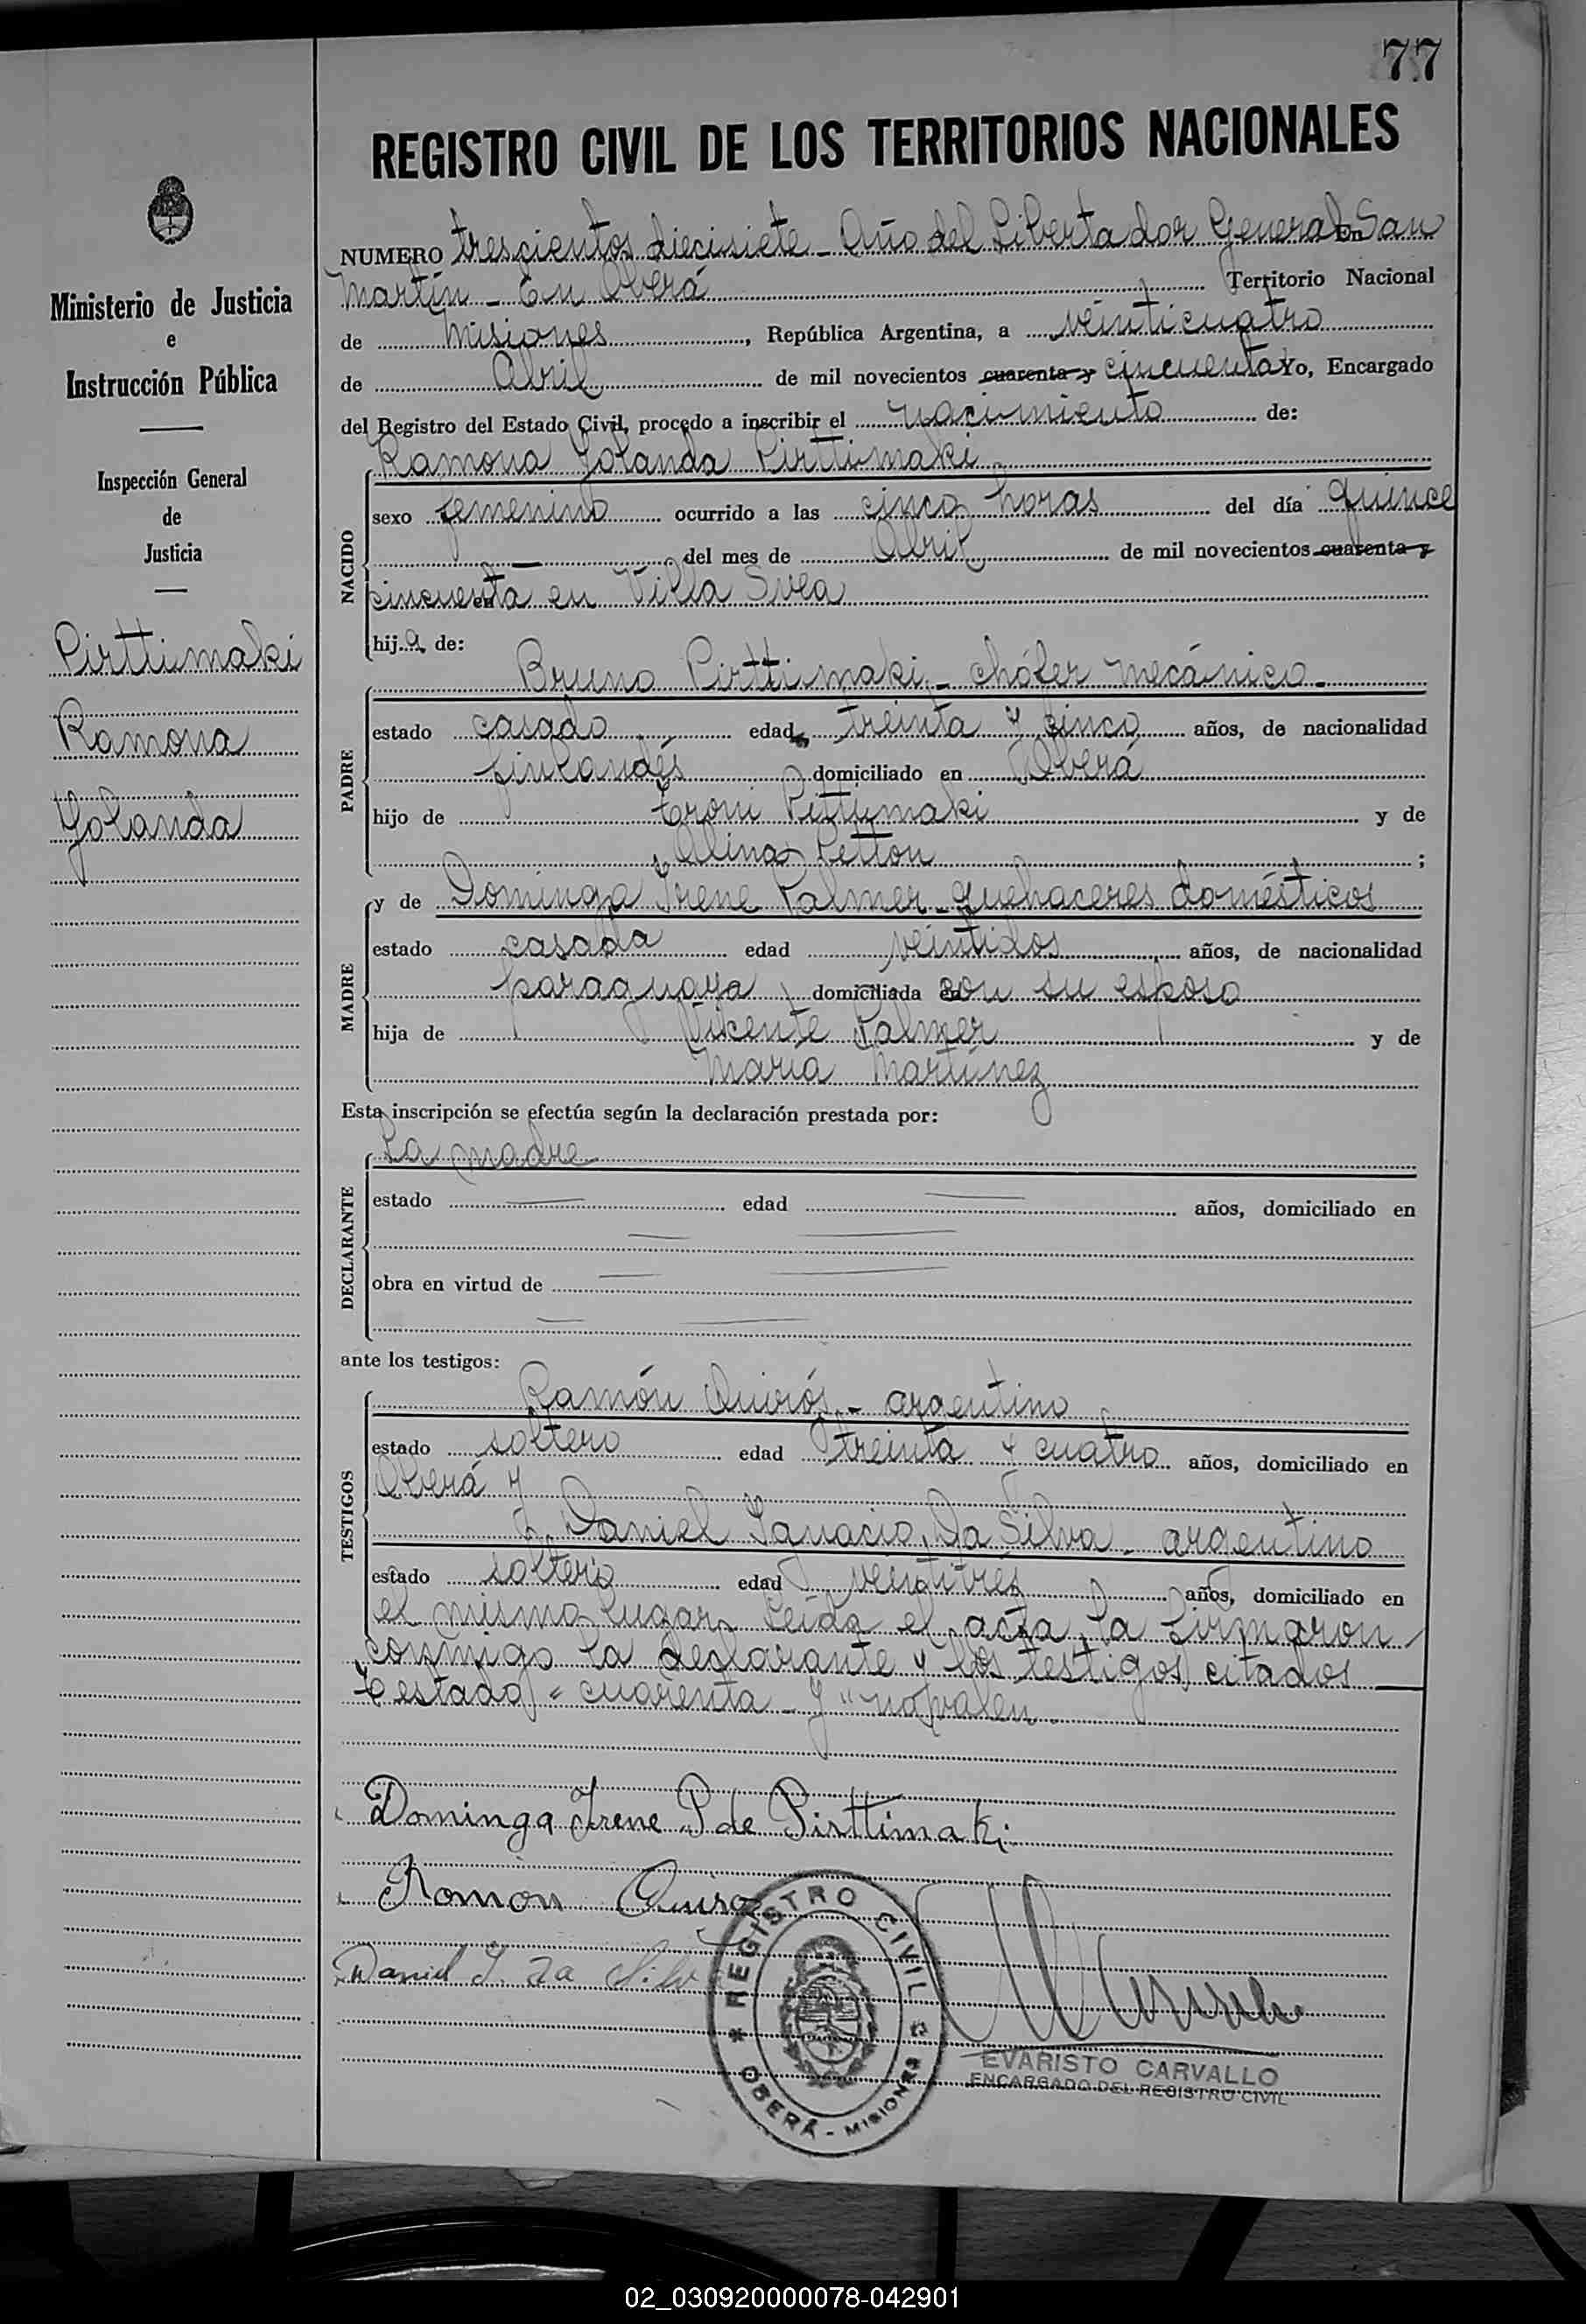 77
REGISTRO CIVIL DE LOS TERRITORIOS NACIONALES
Ministerio de Justicia
e
Instrucción Pública
Inspección General
de
Justicia
Pirttimaki
Ramona
Yolanda
NUMERO trescientos diecisiete - Año del Libertador General San
Martín - En Oberá Territorio Nacional
de Misiones, República Argentina, a veinticuatro
de Abril de mil novecientos cuarenta y cincuenta Yo, Encargado
del Registro del Estado Civil, procedo a inscribir el nacimiento de:
NACIDO
Ramona Yolanda Pirttimaki
sexo femenino ocurrido a las cinco horas del día quince
— del mes de Abril de mil novecientos cuarenta y
cincuenta en Villa Svea
hija de:
PADRE
Bruno Pirttimaki - chófer mecánico -
estado casado edad treinta y cinco años, de nacionalidad
finlandés domiciliado en Oberá
hijo de Pittimaki y de
Alina ;
MADRE
y de Dominga Irene Palmer - quehaceres domésticos
estado casada edad veintidos años, de nacionalidad
paraguaya domiciliada con su esposo
hija de Vicente Palmer y de
María Martínez
Esta inscripción se efectúa según la declaración prestada por:
DECLARANTE
La madre
estado edad años, domiciliado en
obra en virtud de
ante los testigos:
TESTIGOS
Ramón Quirós - argentino
estado soltero edad treinta y cuatro años, domiciliado en
Oberá y
Daniel Ignacio Da Silva - argentino
estado soltero edad veintitres años, domiciliado en
el mismo lugar. Leída el acta, la firmaron
conmigo la declarante y los testigos citados —
Testado "cuarenta - y" no valen
Dominga Irene P. de Pirttimaki
Ramon Quiros
Daniel I. Da Silva
REGISTRO CIVIL
OBERÁ - MISIONES
EVARISTO CARVALLO
ENCARGADO DEL REGISTRO CIVIL
02_030920000078-042901